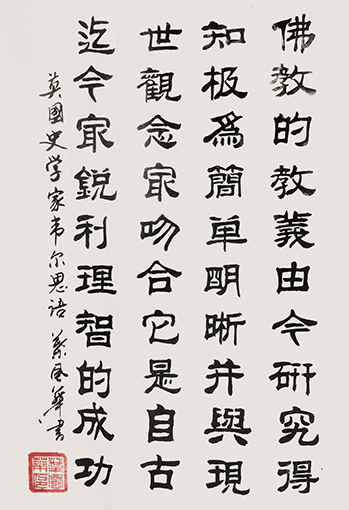 佛教的教義由今研究得
知极為簡单明晰并與現
世觀念冣吻合它是自古
迄今冣鋭利理智的成功
英國史学家韦尔思语 華书